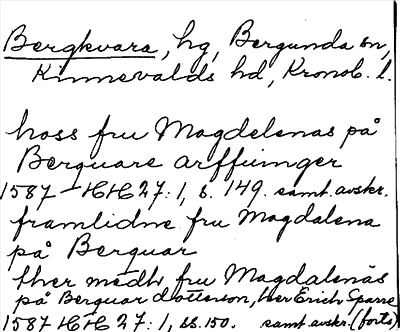 Bergkvara, hg, Bergunda sn,
Kinnevalds hd, Kronob. l.
hoss fru Magdelenas på
Berquare arffuinger
1587 HH 27:1, s. 149. samt. avskr.
framlidne fru Magdalena
på Berquar
ther medh fru Magdalenas
på Berquar dotterson, her Erich Sparre
1587 HH 27:1, ss. 150. samt avskr. (forts)